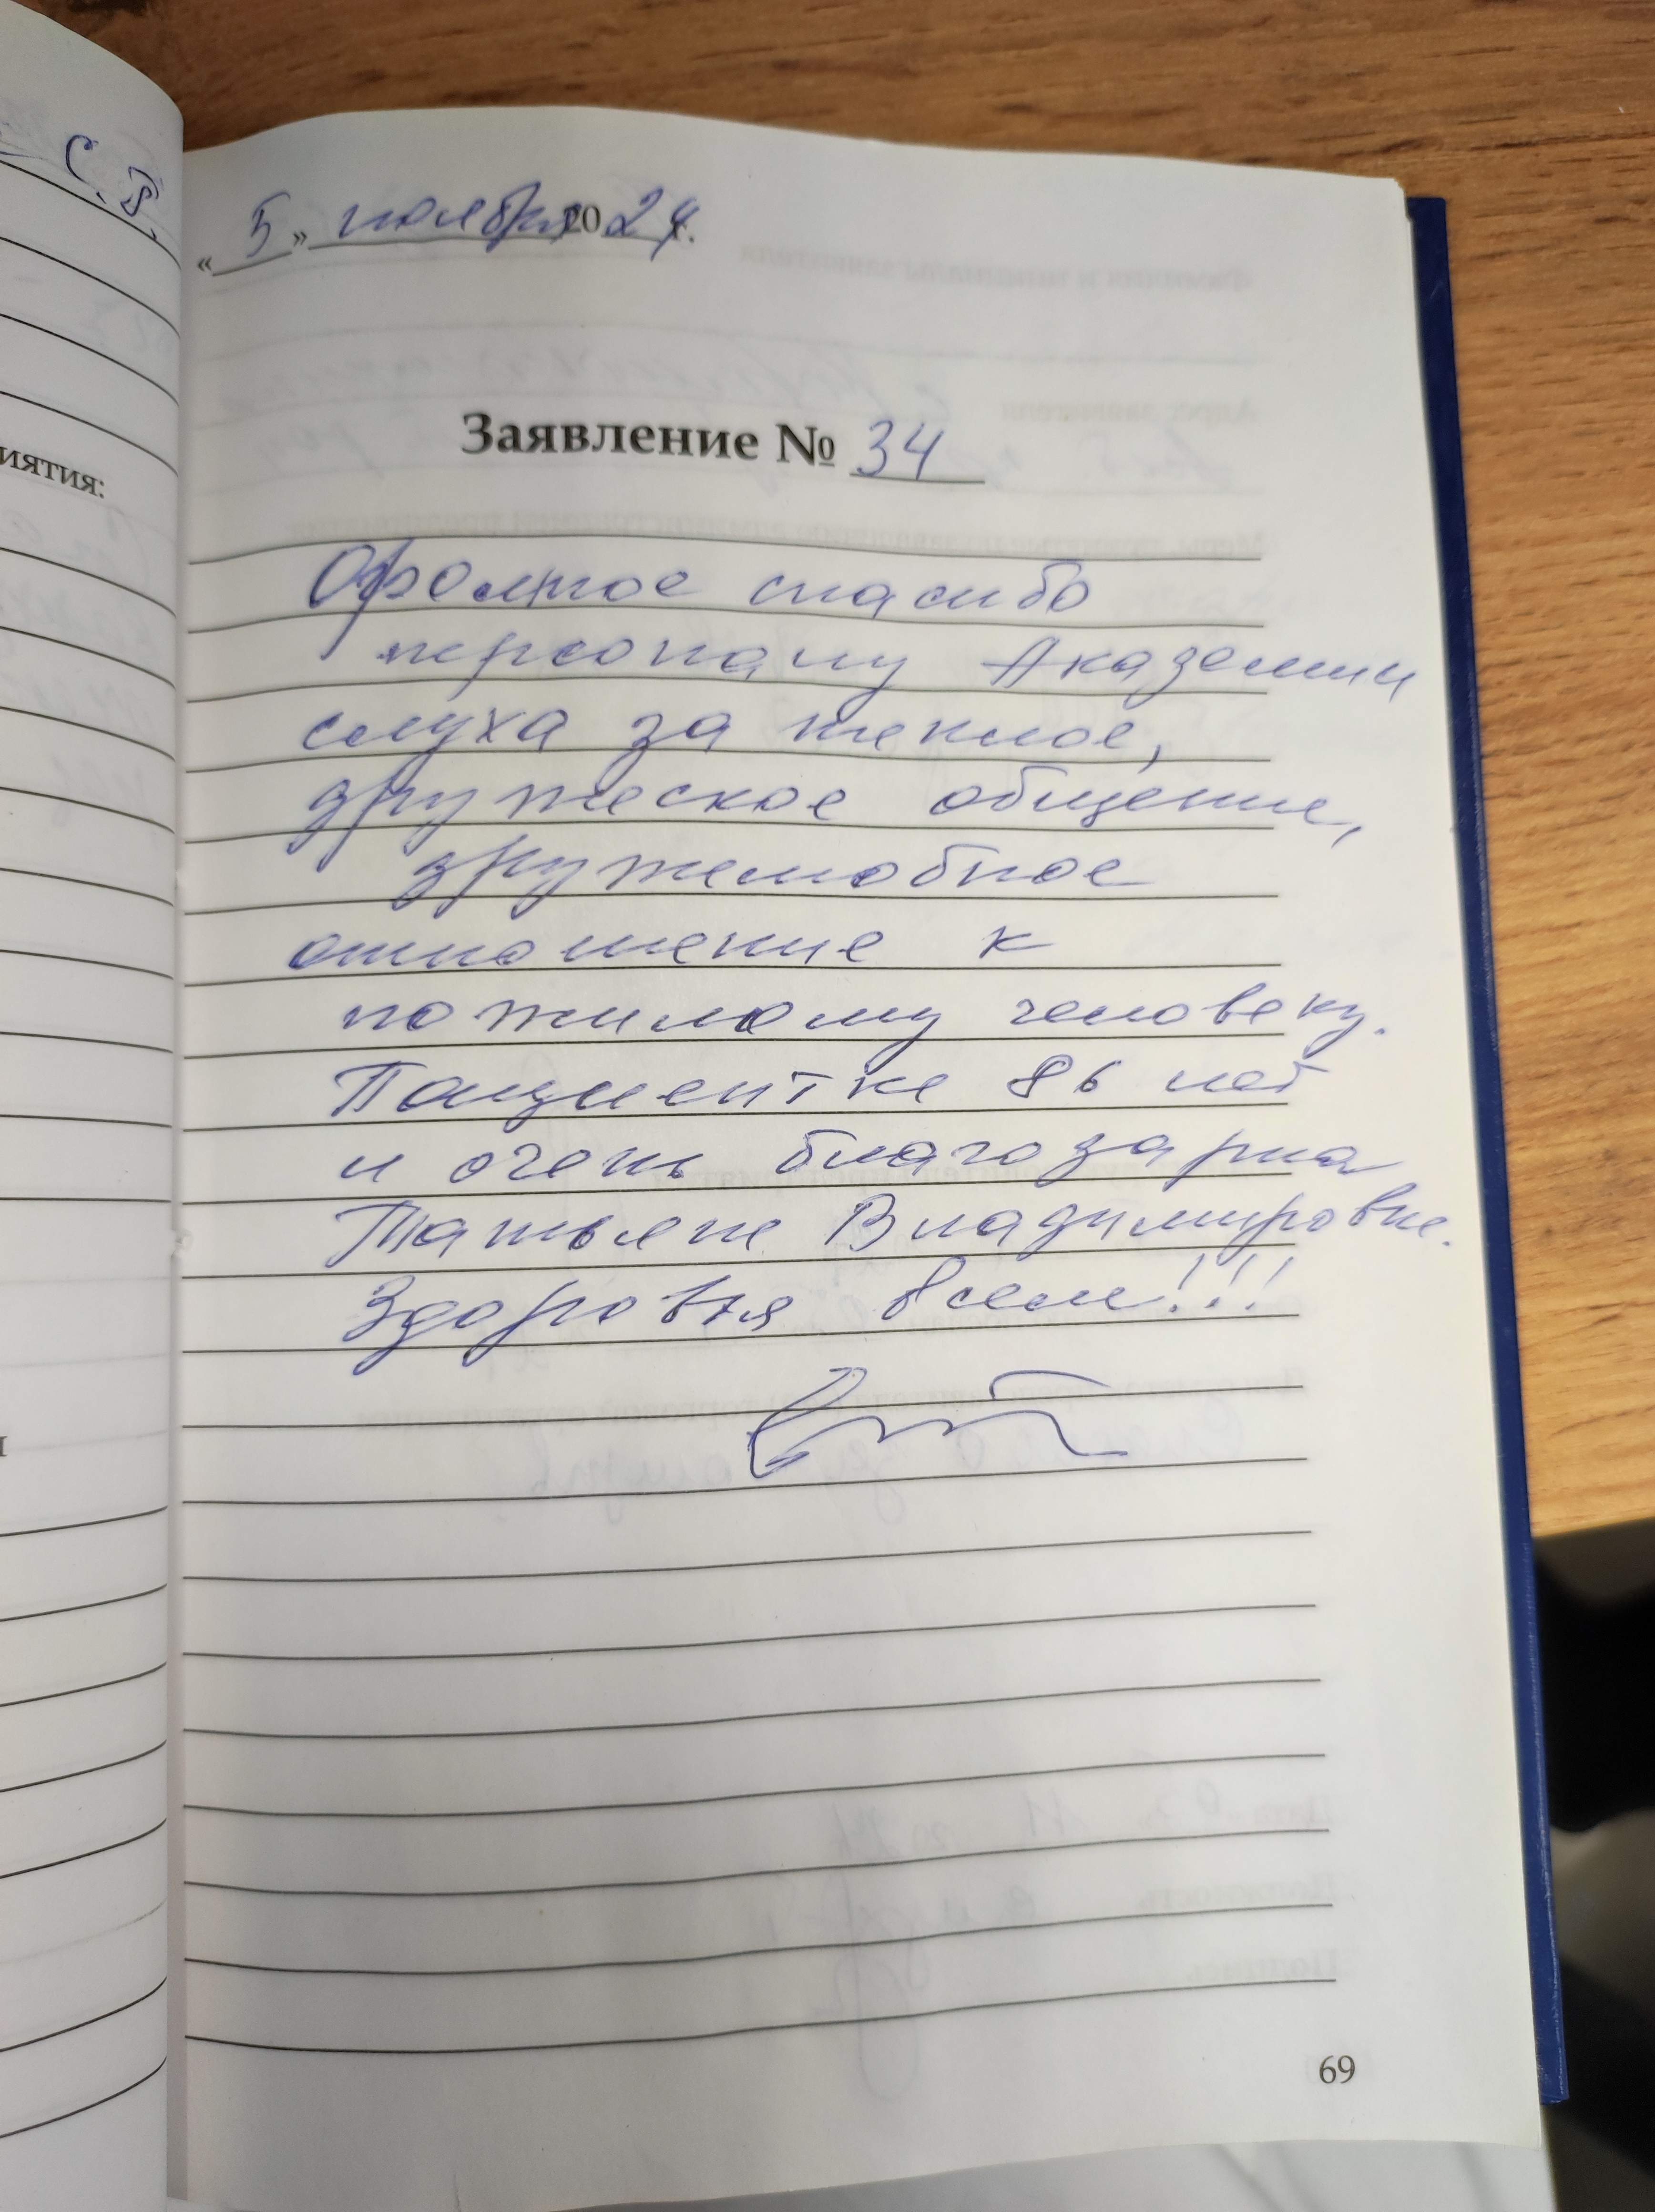 С. В.
иятия:
« 5 » ноября 2024 г.
Заявление № 34
Огромное спасибо
персоналу Академии
слуха за теплое,
дружеское общение,
дружелюбное
отношение к
пожилому человеку.
Пациентке 86 лет
и очень благодарна
Татьяне Владимировне.
Здоровья всем!!!
69